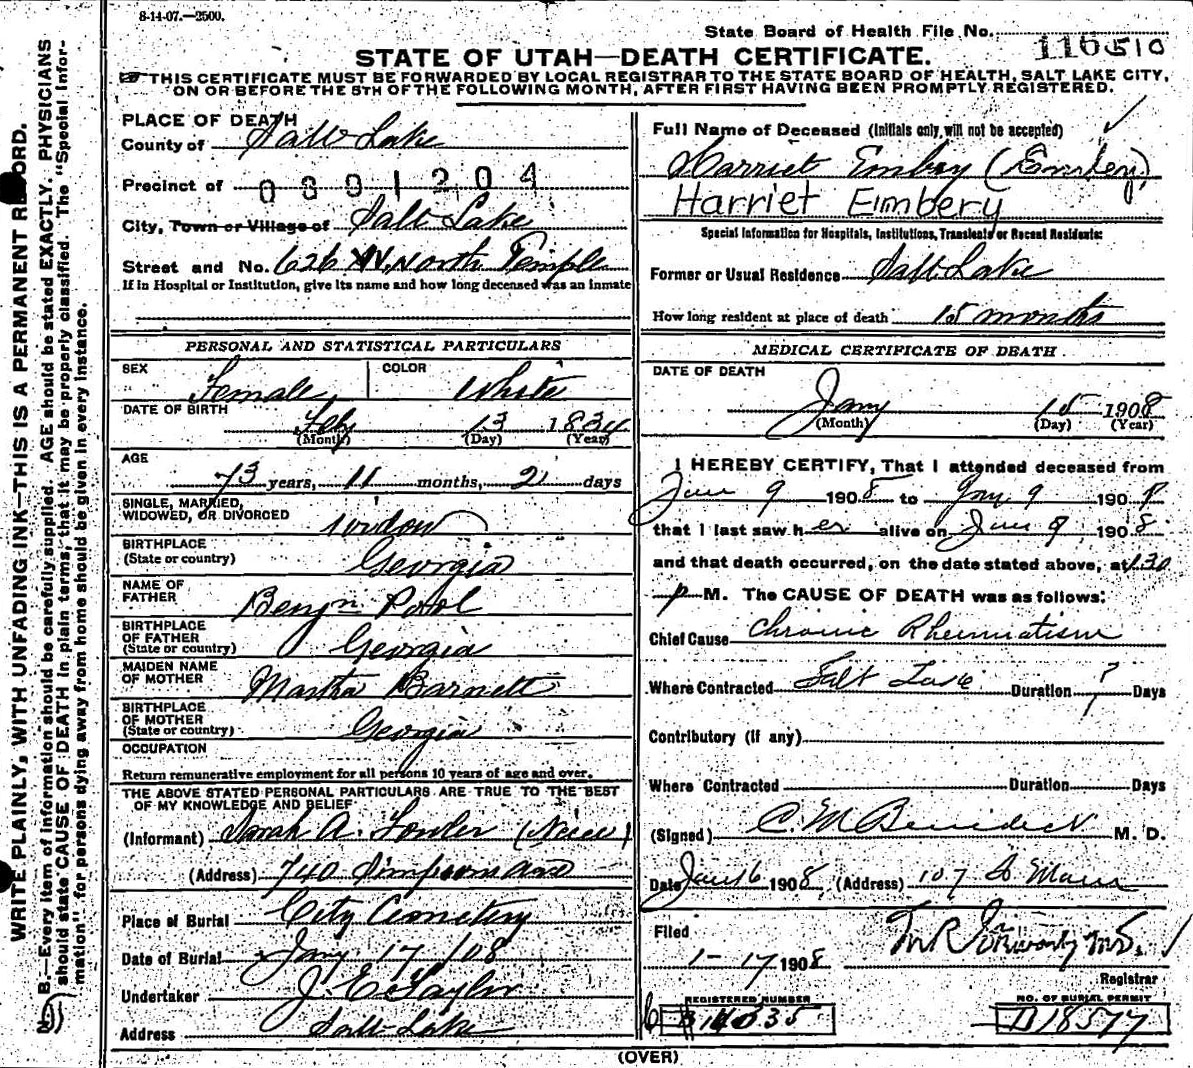 8-14-07.—2500.
State Board of Health File No. 116510
STATE OF UTAH—DEATH CERTIFICATE.
THIS CERTIFICATE MUST BE FORWARDED BY LOCAL REGISTRAR TO THE STATE BOARD OF HEALTH, SALT LAKE CITY,
ON OR BEFORE THE 5TH OF THE FOLLOWING MONTH, AFTER FIRST HAVING BEEN PROMPTLY REGISTERED.
WRITE PLAINLY, WITH UNFADING INK—THIS IS A PERMANENT RECORD.
N. B.—Every item of information should be carefully supplied. AGE should be stated EXACTLY. PHYSICIANS
should state CAUSE OF DEATH in plain terms, that it may be properly classified. The "Special Infor-
mation" for persons dying away from home should be given in every instance.
PLACE OF DEATH
County of Salt Lake
Precinct of 0391204
City, Town or Village of Salt Lake
Street and No. 626 W. North Temple
If in Hospital or Institution, give its name and how long deceased was an inmate
PERSONAL AND STATISTICAL PARTICULARS
SEX Female COLOR White
DATE OF BIRTH Feby 13 1834
(Month) (Day) (Year)
AGE 73 years, 11 months, 2 days
SINGLE, MARRIED,
WIDOWED, OR DIVORCED widow
BIRTHPLACE
(State or country) Georgia
NAME OF
FATHER Benjn Pool
BIRTHPLACE
OF FATHER
(State or country) Georgia
MAIDEN NAME
OF MOTHER Martha Barnett
BIRTHPLACE
OF MOTHER
(State or country) Georgia
OCCUPATION
Return remunerative employment for all persons 10 years of age and over.
THE ABOVE STATED PERSONAL PARTICULARS ARE TRUE TO THE BEST
OF MY KNOWLEDGE AND BELIEF
(Informant) Sarah A. Fowler (Niece)
(Address) 740 Simpson ave
Place of Burial City Cemetery
Date of Burial Jany 17/08
Undertaker J. E Taylor
Address Salt Lake
Full Name of Deceased (Initials only, will not be accepted)
Harriet Embry (Embery)
Harriet Eimbery
Special Information for Hospitals, Institutions, Transients or Recent Residents:
Former or Usual Residence Salt Lake
How long resident at place of death 15 months
MEDICAL CERTIFICATE OF DEATH
DATE OF DEATH
Jany 15 1908
(Month) (Day) (Year)
I HEREBY CERTIFY, That I attended deceased from
Jan 9 1908 to Jan. 9 1908
that I last saw her alive on Jan 9 1908
and that death occurred, on the date stated above, at 1.30
p M. The CAUSE OF DEATH was as follows:
Chief Cause Chronic Rheumatism
Where Contracted Salt Lake Duration ? Days
Contributory (if any)
Where Contracted Duration Days
(Signed) C. M Benedict M. D.
Date Jan 16 1908 (Address) 107 S Main
Filed
1-17 1908
Registrar
REGISTERED NUMBER
NO. OF BURIAL PERMIT
B18577
(OVER)